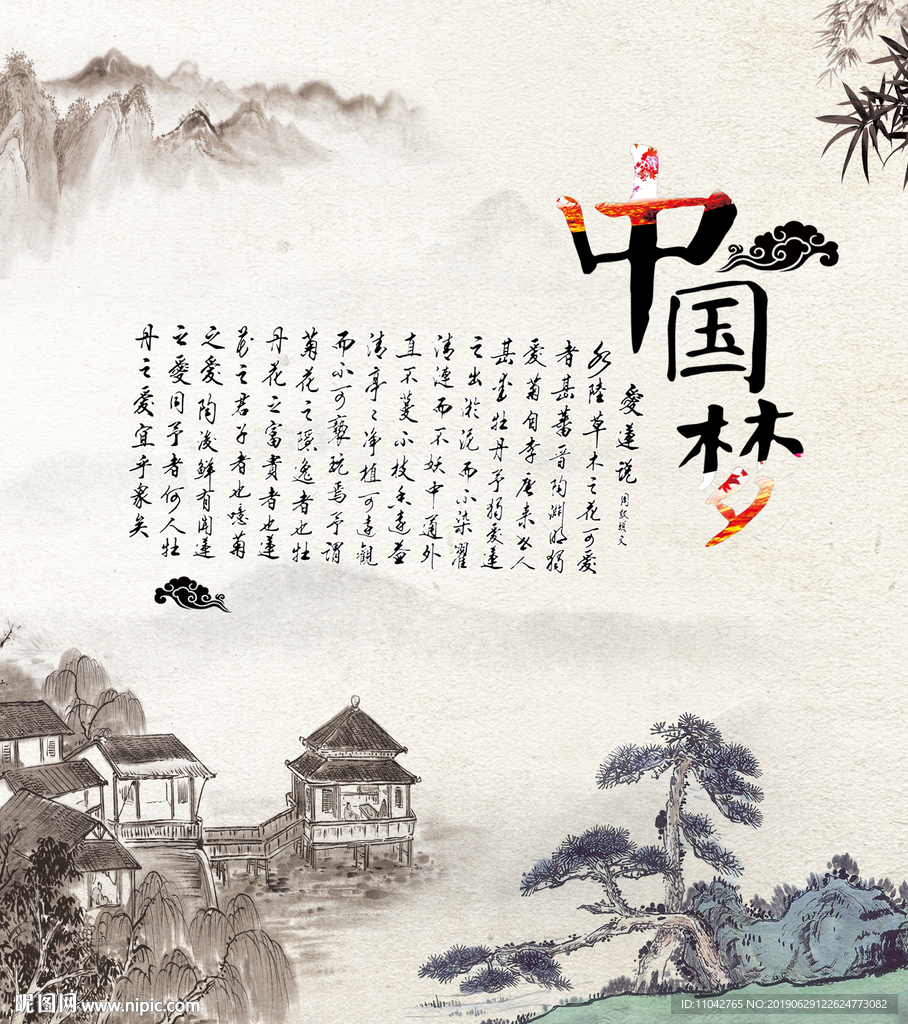 中国梦
愛蓮説
周敦頤文
水陸草木之花可愛
者甚蕃晉陶淵明獨
愛菊自李唐来世人
甚愛牡丹予獨愛蓮
之出淤泥而不染濯
清漣而不妖中通外
直不蔓不枝香遠益
清亭〻净植可遠觀
而不可褻玩焉予謂
菊花之隱逸者也牡
丹花之富貴者也蓮
花之君子者也噫菊
之愛陶後鮮有聞蓮
之愛同予者何人牡
丹之愛宜乎衆矣
昵图网 www.nipic.com
ID:11042765 NO:20190629122624773082